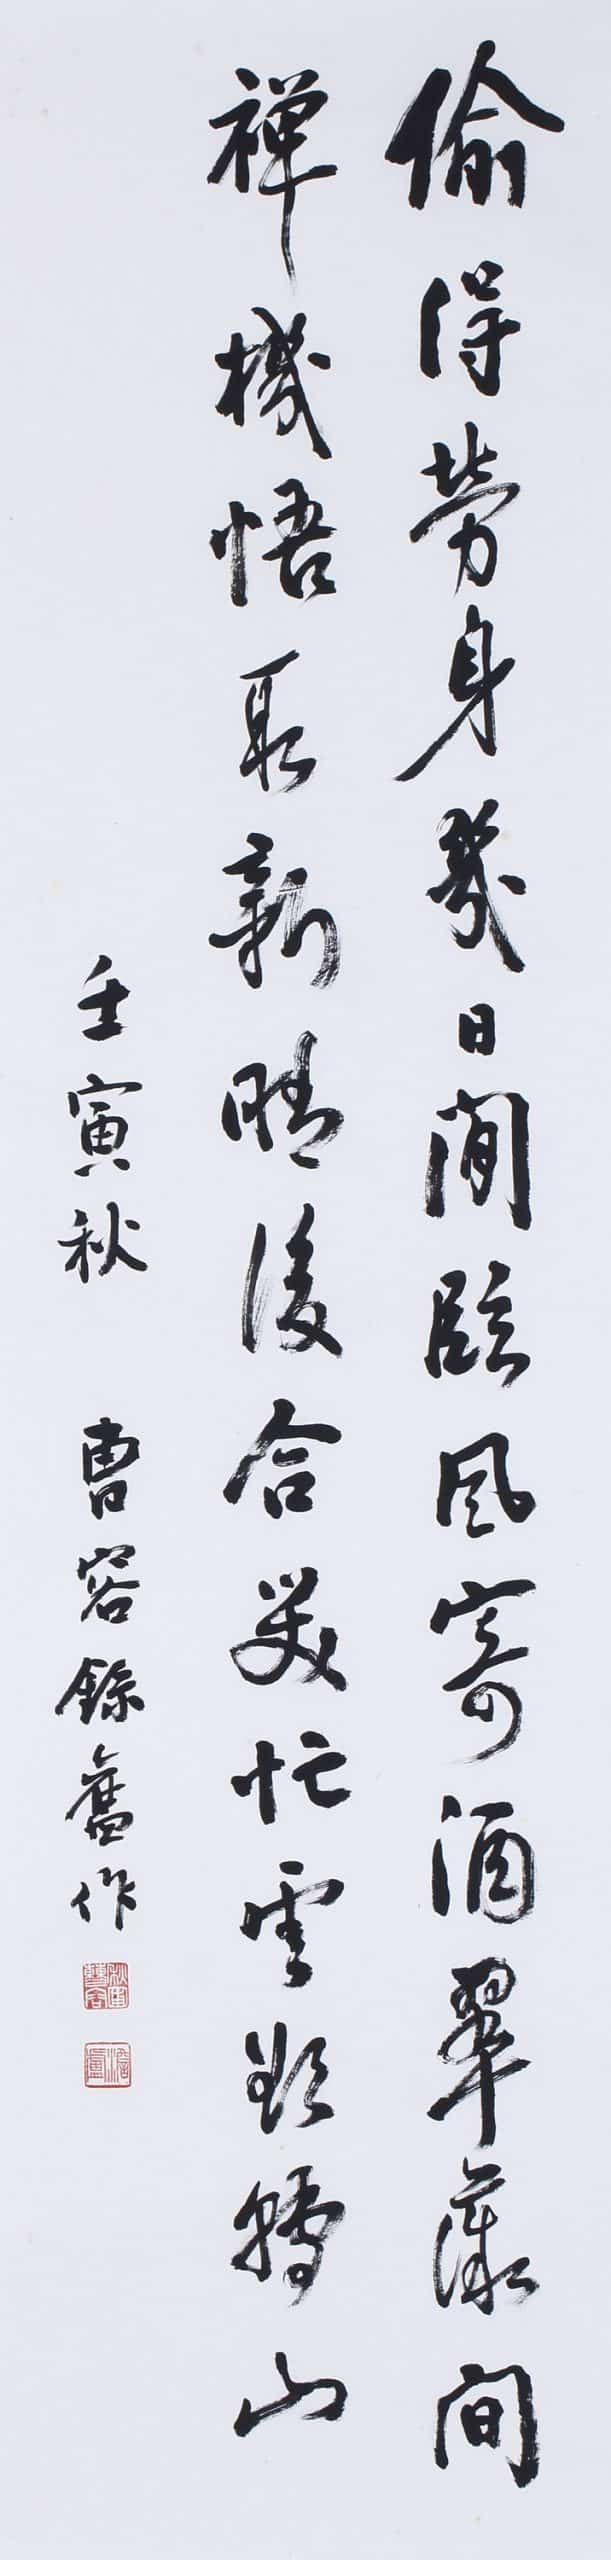 偷得勞身幾日閒臨風寄酒翠薇間
禪機悟取新晴後合笑忙雲欲轉山
壬寅秋 曹容錄舊作
秋圃曹容
澹廬